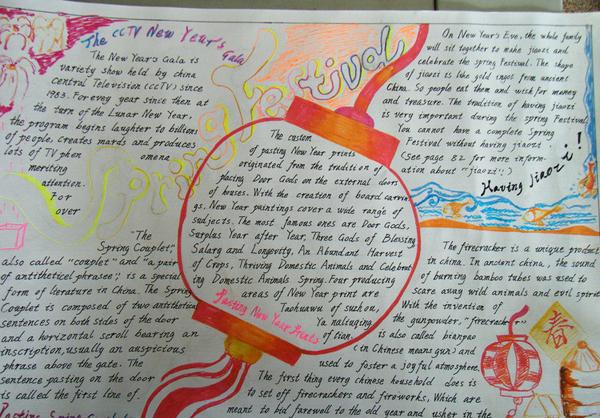 The CCTV New Year's Gala
The New Year's Gala is
variety show held by china
central Television (CCTV) since
1983. For evey year since then at
the turn of the Lunar New Year,
the program begins laughter to billions
of people, Creates mards and produces
lots of TV phen omena
meriting
attention.
For
over
Spring Festival
The custom
of pasting New Year prints
originated from the tradition of
placing Door Gods on the external doors
of houses. With the creation of board carvin
gs, New Year paintings cover a wide range of
subjects. The most famous ones are Door Gods,
Surplus Year after Year, Three Gods of Blessing
Salary and Longevity, An Abundant Harvest
of Crops, Thriving Domestic Animals and Celebrat
ing Domestic Animals Spring. Four producing
areas of New Year print are
Taohuawu of suzhou,
Ya naluqing
of tian
Pasting New Year Prints
On New Year's Eve, the whole family
will sit together to make jiaozi and
celebrate the spring Festival. The shape
of jiaozi is like gold ingot from ancient
China. So people eat them and wish for money
and treasure. The tradition of having jiaozi
is very important during the spring Festival.
You cannot have a complete Spring
Festival without having jiaozi.
(See page 82 for more inform-
ation about "jiaozi!")
Having jiaozi!
"The
Spring Couplet",
also called "couplet" and "a pair
of antithetical phrasee", is a special
form of literature in China. The Spring
Couplet is composed of two antithetical
sentences on both sides of the door
and a horizontal scroll bearing an
inscription, usually an auspicious
phrase above the gate. The
sentence pasting on the door
is called the first line of.
Pasting Spring Couplets
The firecracker is a unique product
in china. In ancient china, the sound
of burning bamboo tubes was used to
scare away wild animals and evil spirit
With the invention of
the gunpowder, "firecracker
is also called bianpao
(in Chinese means gun) and
used to foster a joyful atmosphere.
The first thing every chinese household does is
to set off firecrackers and fireworks, Which are
meant to bid farewell to the old year and usher in the
春